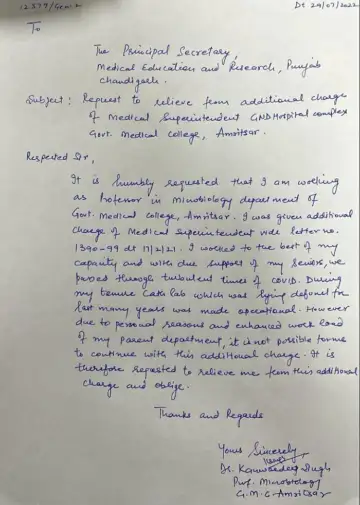 12377/Genl
Dt 29/07/2022
To
The Principal Secretary,
Medical Education and Research, Punjab
Chandigarh.
Subject: Request to relieve from additional charge
of Medical Superintendent GNDHospital complex
Govt. Medical College, Amritsar.
Respected Sir,
It is humbly requested that I am working
as Professor in Microbiology department of
Govt. Medical College, Amritsar. I was given additional
charge of Medical Superintendent vide letter no.
1390-99 dt 17/2/21. I worked to the best of my
capacity and with due support of my seniors, we
passed through turbulent times of COVID. During
my tenure Cath lab which was lying defunct for
last many years was made operational. However
due to personal reasons and enhanced work load
of my parent department, it is not possible for me
to continue with this additional charge. It is
therefore requested to relieve me from this additional
charge and oblige.
Thanks and Regards
Yours Sincerely
Dr. Kanwardeep Singh
Prof. Microbiology
G.M.C. Amritsar